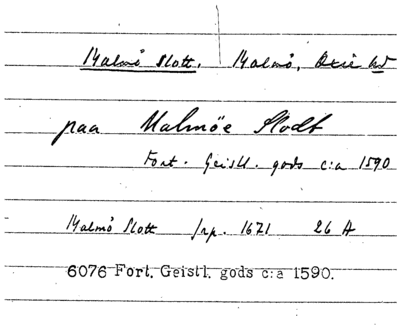 Malmö Slott. Malmö, Oxie hd
paa Malmöe Slodt
Fort. Geistl. gods c:a 1590
Malmö Slott Jrp. 1671 26 A
6076 Fort. Geistl. gods c:a 1590.